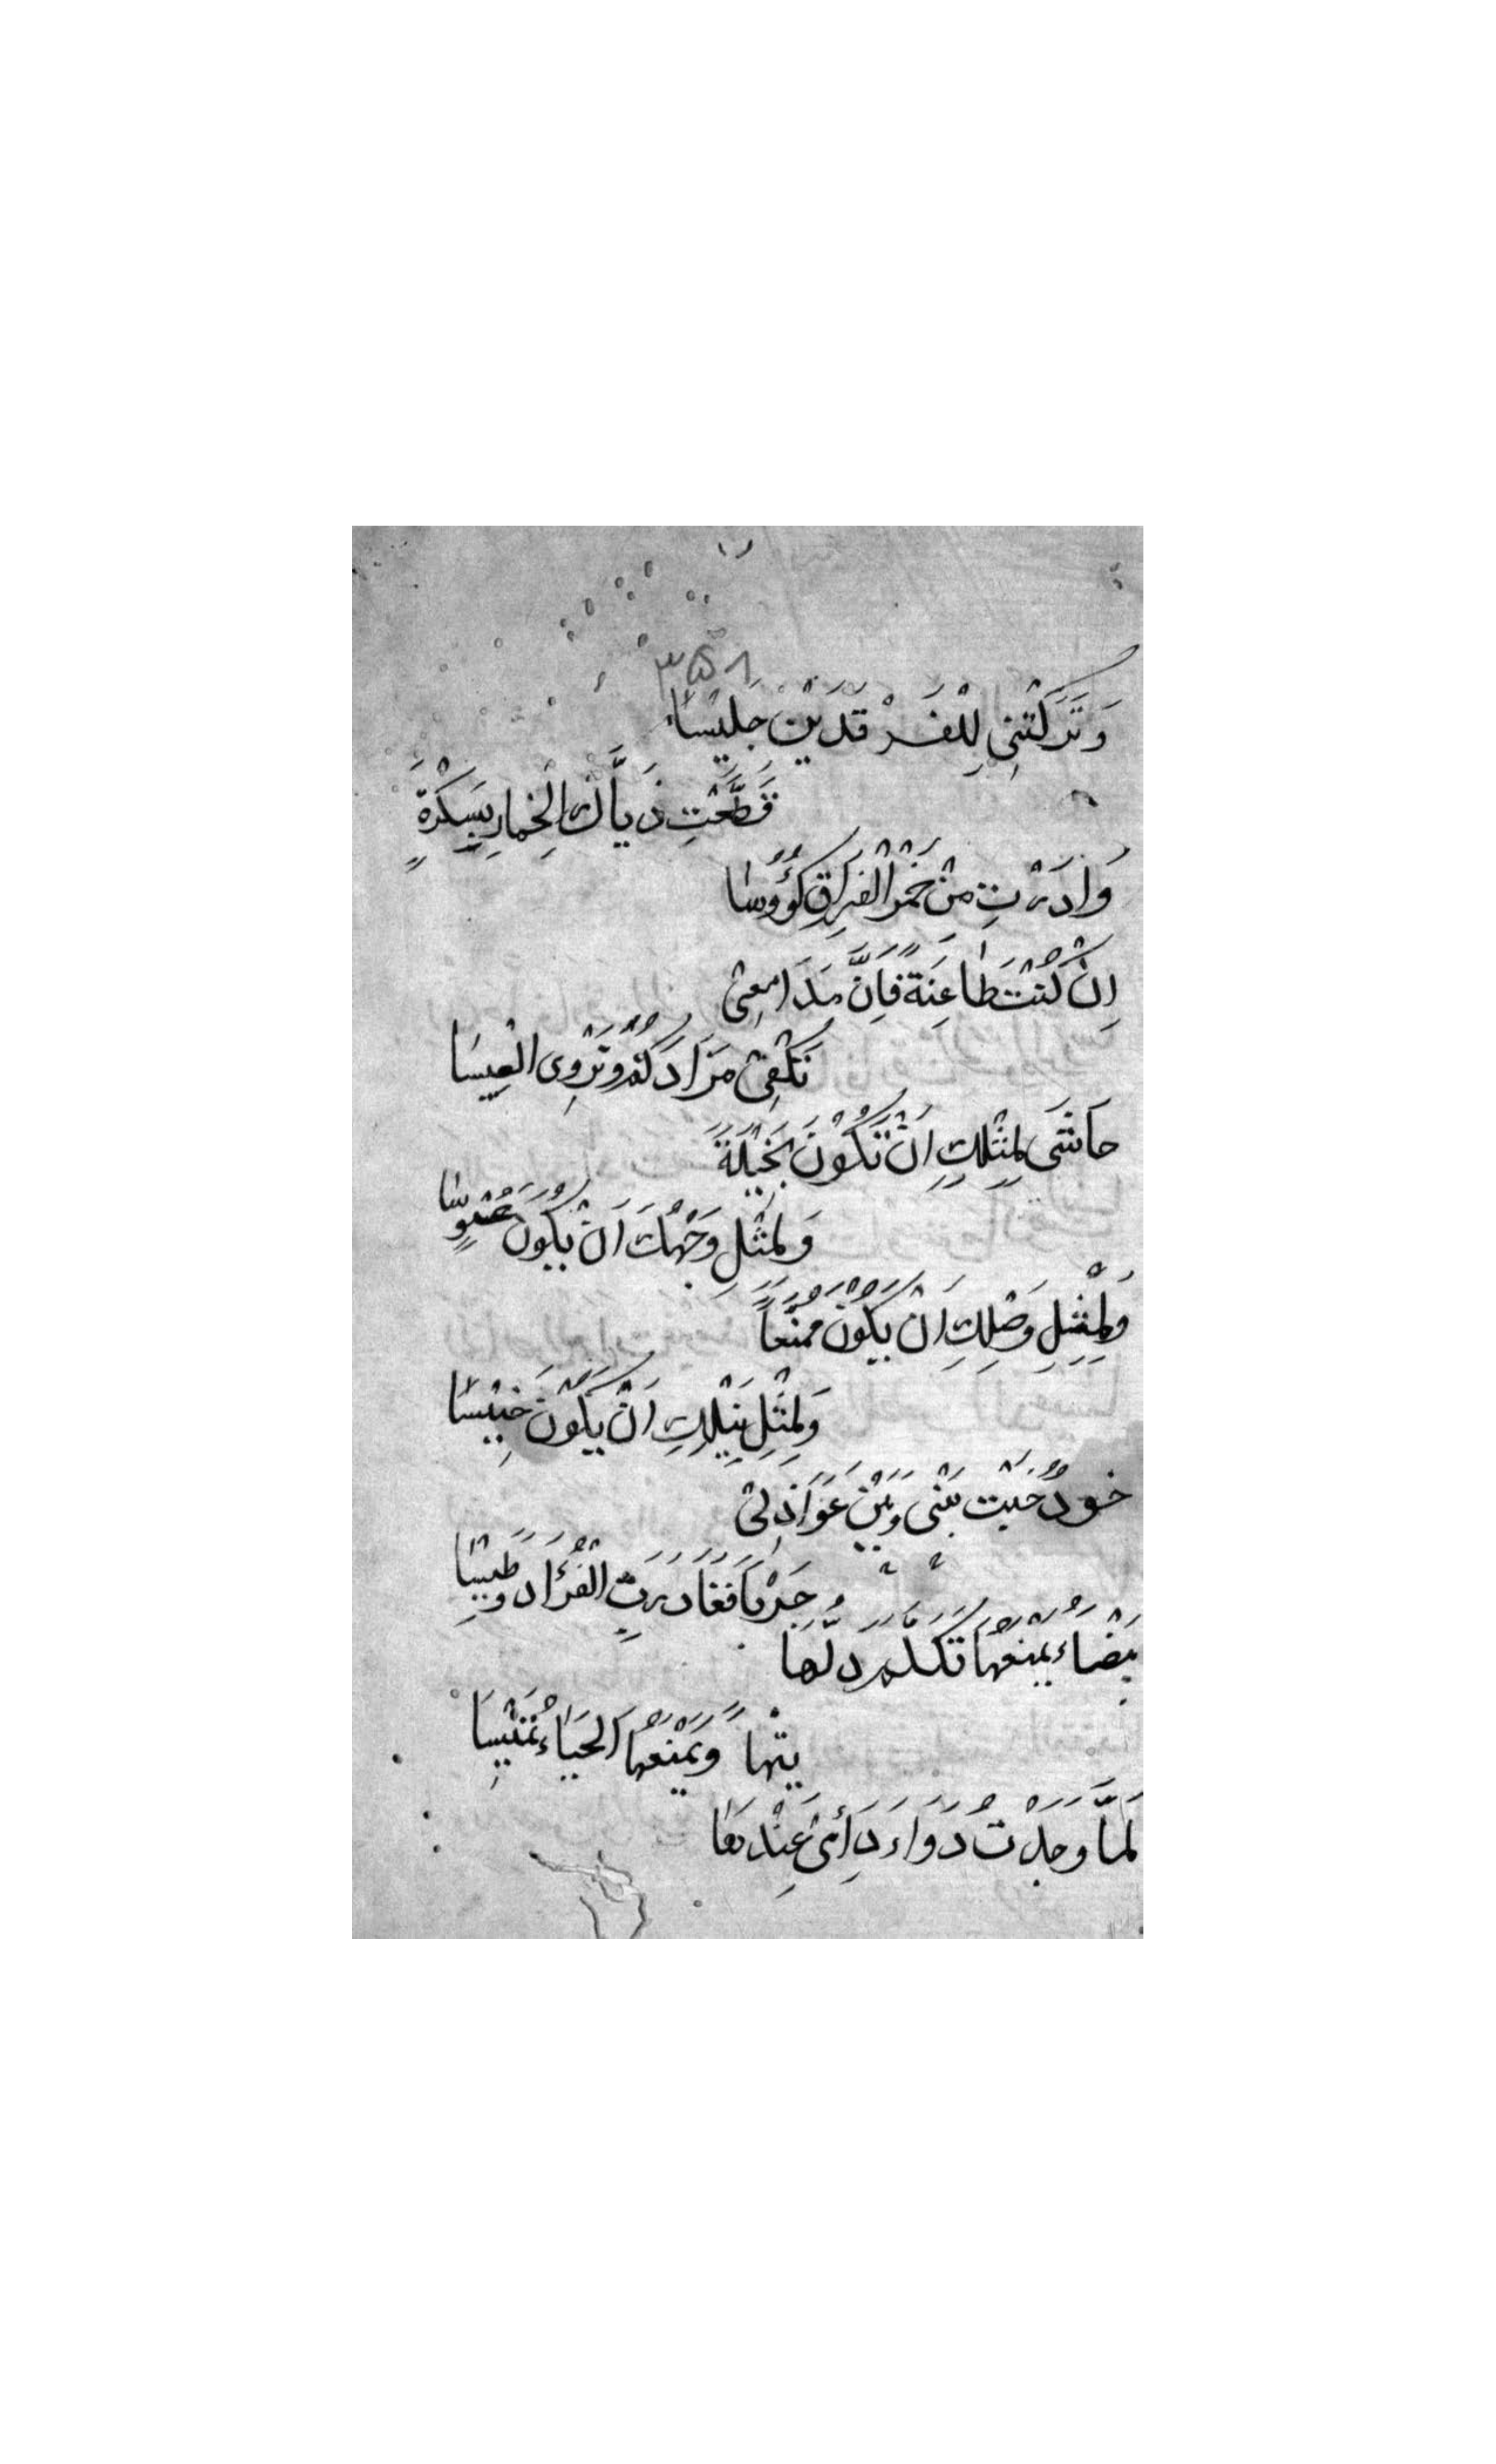 ٣٥٨
وَتَرَكْتِنِي لِلْفَرْقَدَيْنِ جَلِيْسًا
قَطَّعْتِ ذَيَّاكِ الْخُمَارِ بِسَكْرَةٍ
وَاَدَرْتِ مِنْ خَمْرِ الْفِرَاقِ كُؤُوسًا
اِنْ كُنْتِ ظَاعِنَةً فَاِنَّ مَدَامِعِىْ
تَكْفِىْ مَزَادَكُمُ وَتَرْوِى الْعِيسَا
حَاشَى لِمِثْلِكِ اَنْ تَكُوْنَ بَخِيْلَةً
وَلِمِثْلِ وَجْهِكِ اَنْ يَكُوْنَ عَبُوسًا
وَلِمِثْلِ وَصْلِكِ اَنْ يَكُوْنَ مُمَنَّعًا
وَلِمِثْلِ نَيْلِكِ اَنْ يَكُوْنَ خَسِيْسًا
خَوْدٌ جَنَتْ بَيْنِى وَبَيْنَ عَوَاذِلِىْ
حَرْبًا فَغَادَرَتِ الْفُؤَادَ وَطِيْسًا
بَيْضَاءُ يَمْنَعُهَا تَكَلُّمَ دَلُّهَا
تِيْهًا وَيَمْنَعُهَا الْحَيَاءُ تَمِيْسَا
لَمَّا وَجَدْتُ دَوَاءَ دَائِىْ عِنْدَهَا